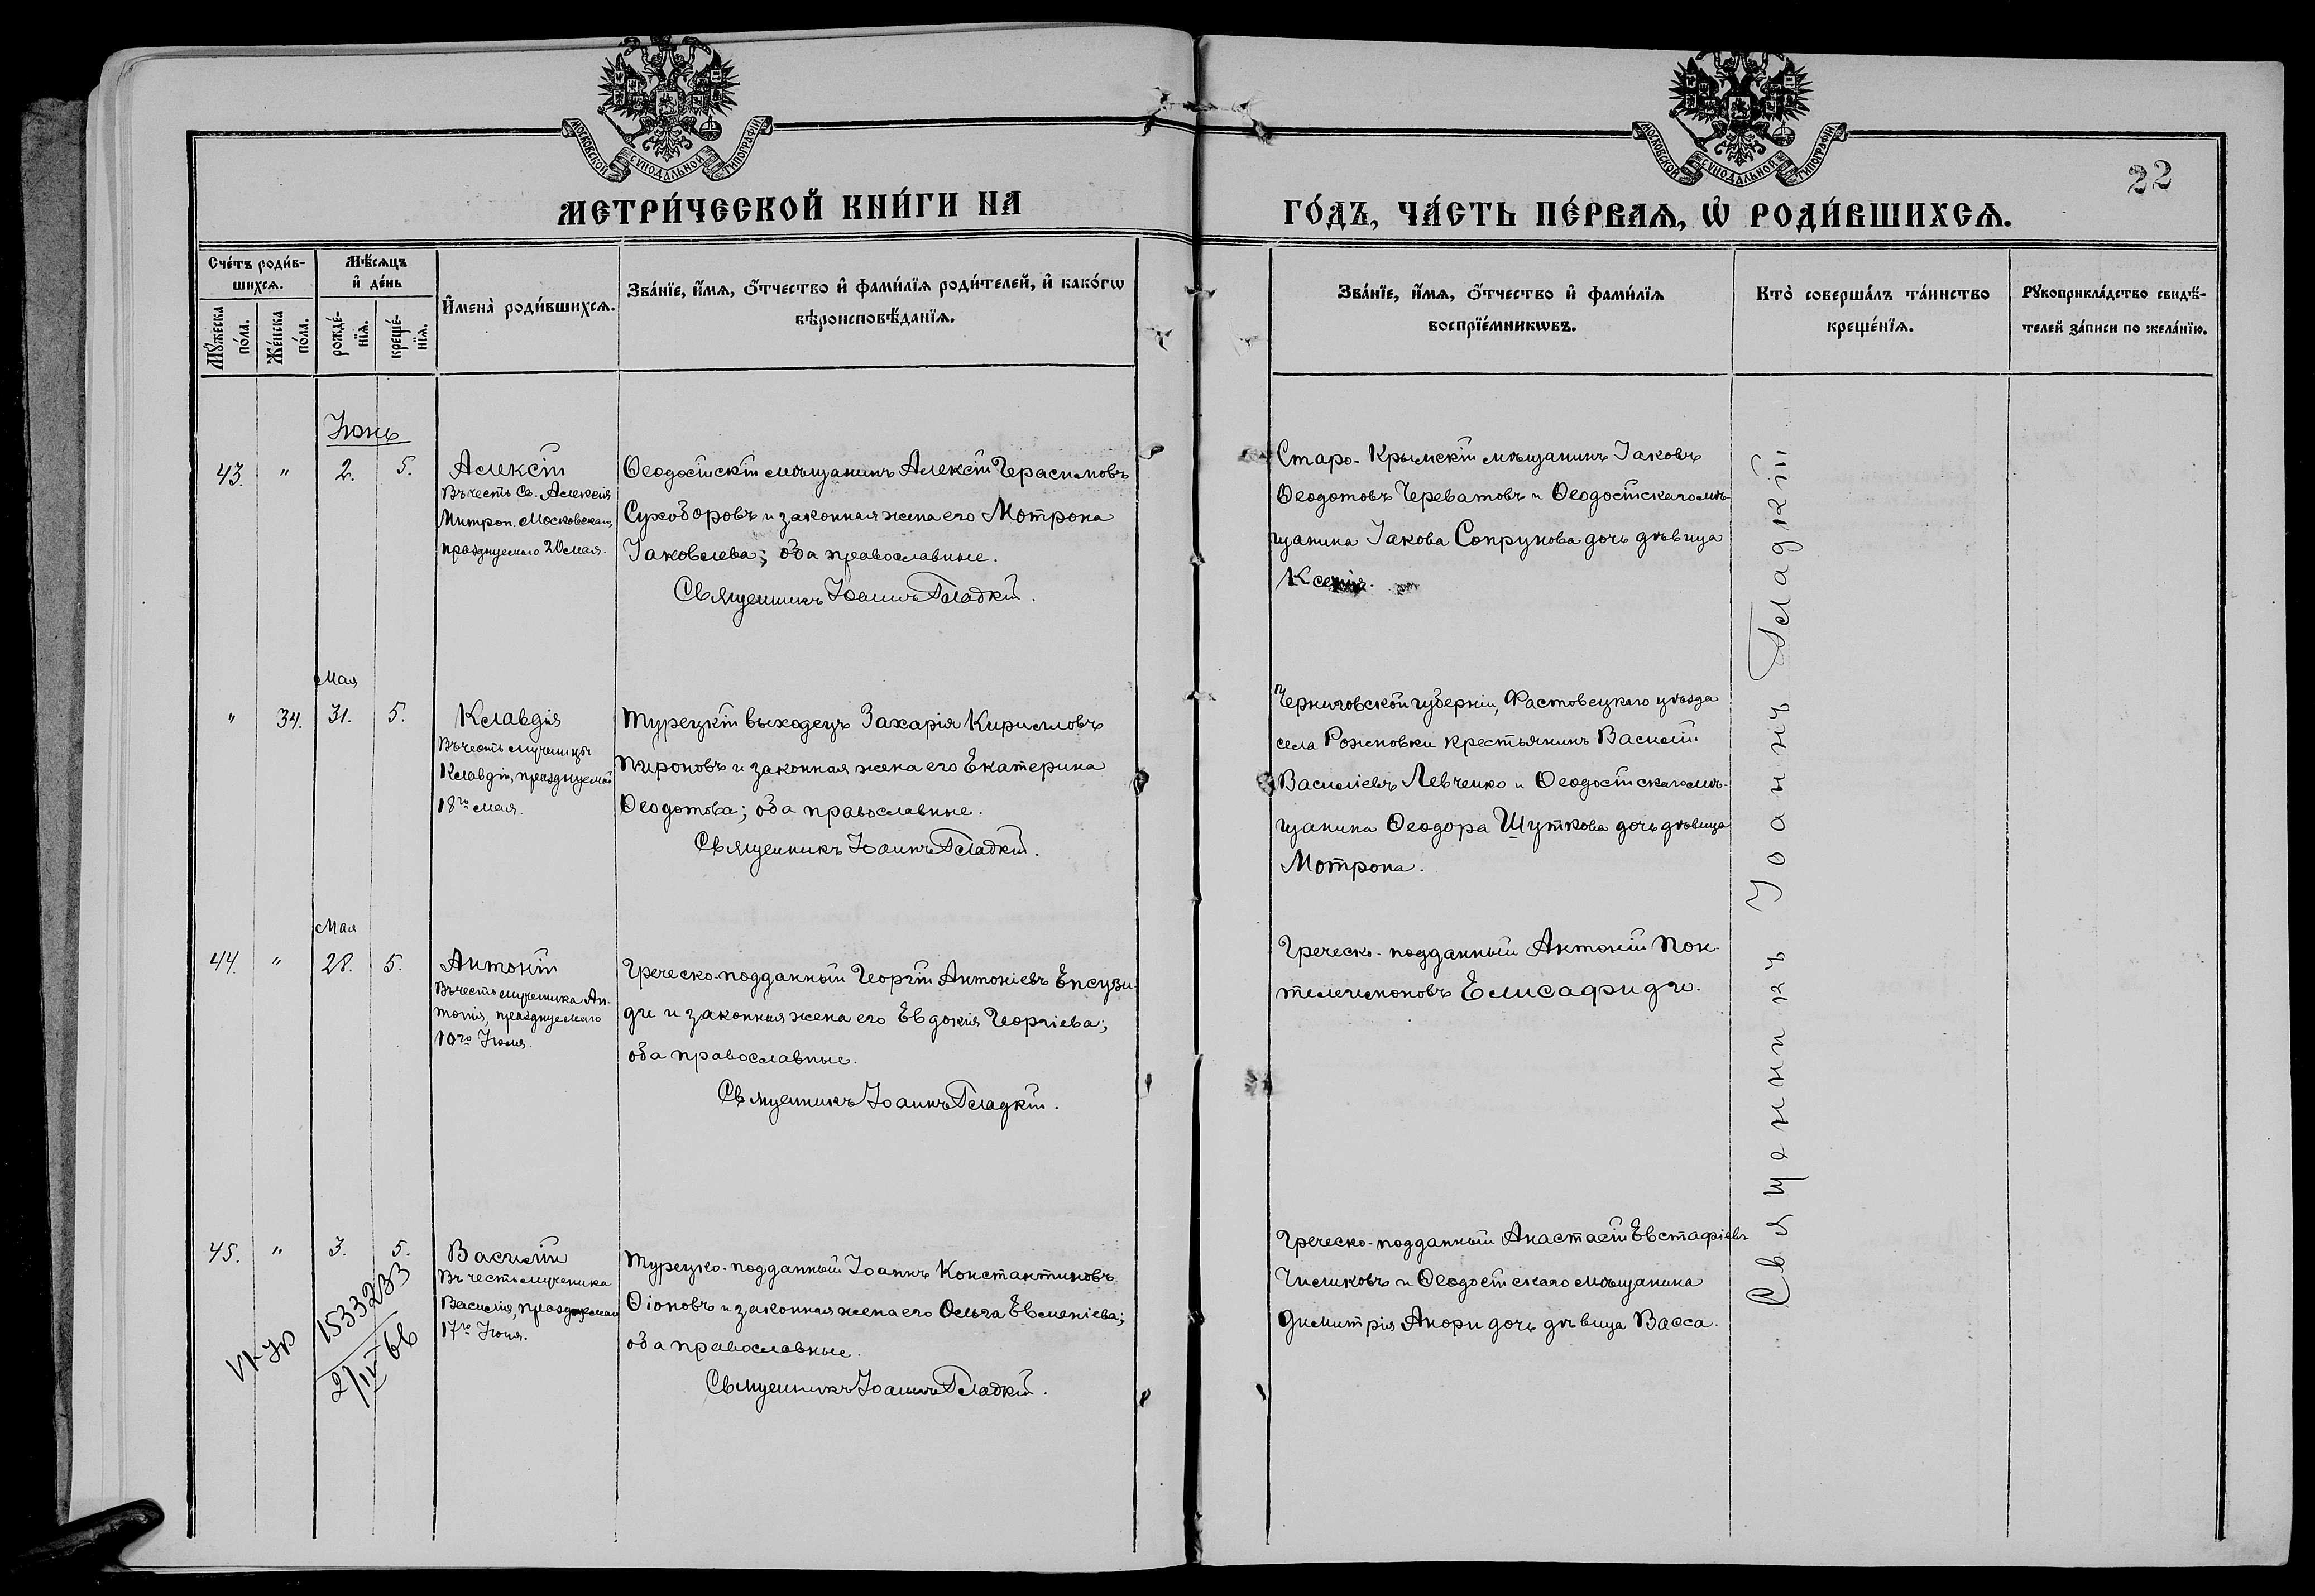 МОСКОВСКОЙ СѴНОДАЛЬНОЙ ТИПОГРАФІИ
МОСКОВСКОЙ СѴНОДАЛЬНОЙ ТИПОГРАФІИ
22
МЕТРИ́ЧЕСКОЙ КНИ́ГИ НА
ГО́ДЪ, ЧА́СТЬ ПЕ́РВАѦ, Ѡ҆ РОДИ́ВШИХСѦ.
Сче́тъ роди́в-
шихсѧ.
Мꙋ́жеска
по́ла.
Же́нска
по́ла.
Мѣ́сѧцъ
и҆ де́нь
рожде́-
нїѧ.
креще́-
нїѧ.
И҆мена̀ роди́вшихсѧ.
Зва́нїе, и҆́мѧ, ѻ҆́тчество и҆ фами́лїѧ роди́телей, и҆ како́гѡ
вѣроисповѣ́данїѧ.
Зва́нїе, и҆́мѧ, ѻ҆́тчество и҆ фами́лїѧ
воспрїе́мникѡвъ.
Кто̀ соверша́лъ та́инство
креще́нїѧ.
Рꙋкоприкла́дство свидѣ́-
телей за́писи по жела́нїю.
Іюнь
43. " 2. 5.
Алексій
Въ честь Св. Алексія
Митроп. Московскаго,
празднуемаго 20 мая.
Ѳеодосійскій мѣщанинъ Алексій Герасимовъ
Сухоборовъ и законная жена его Мотрона
Іаковлева; оба православные.
Священникъ Іоаннъ Гладкій.
Старо-Крымскій мѣщанинъ Іаковъ
Ѳеодотовъ Череватовъ и Ѳеодосійскаго мѣ-
щанина Іакова Сопрунова дочь дѣвица
Ксенія.
Мая
" 34. 31. 5.
Клавдія
Въ честь мученицы
Клавдіи, празднуемой
18го мая.
Турецкій выходецъ Захарія Кирилловъ
Пироновъ и законная жена его Екатерина
Ѳеодотова; оба православные.
Священникъ Іоаннъ Гладкій.
Черниговской губерніи, уѣзда
села Рожновки крестьянинъ Василій
Василіевъ Левченко и Ѳеодосійскаго мѣ-
щанина Ѳеодора Шуткова дочь дѣвица
Мотрона.
Мая
44. " 28. 5.
Антоній
Въ честь мученика Ан-
тонія, празднуемаго
10го Іюля.
Греческо-подданный Георгій Антоніевъ Епсузи-
ди и законная жена его Евдокія Георгіева;
оба православные.
Священникъ Іоаннъ Гладкій.
Греческо-подданный Антоній Пан-
телеимоновъ Елисафиди.
45. " 3. 5.
Василій
Въ честь мученика
Василія, празднуемаго
17го Іюня.
Турецко-подданный Іоаннъ Константиновъ
Ѳіоновъ и законная жена его Ольга Евменіева;
оба православные.
Священникъ Іоаннъ Гладкій.
Греческо-подданный Анастасій Евстафіевъ
Чиликовъ и Ѳеодосійскаго мѣщанина
Димитрія Анори дочь дѣвица Васса.
Священникъ Іоаннъ Гладкій
1533233
2/IV 66